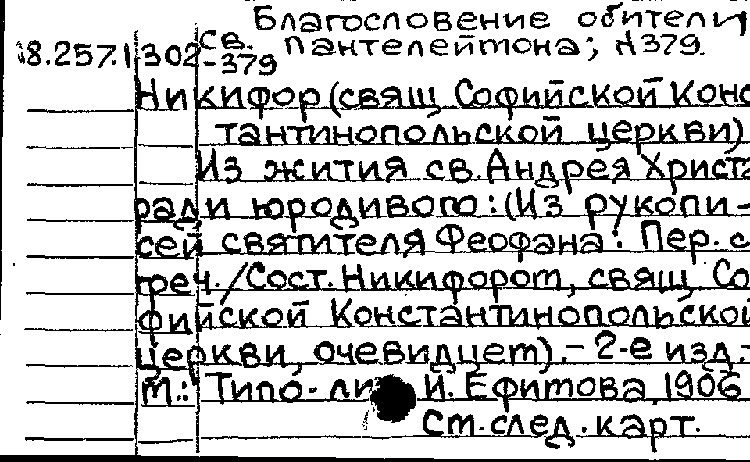 Благословение обители
св. Пантелеймона; N379.
8.257.1 302-379
Никифор (свящ. Софийской Конс
тантинопольской церкви)
Из жития св. Андрея Христа
ради юродивого: (Из рукопи-
сей святителя Феофана: Пер. с
греч. / Сост. Никифором, свящ. Со
фийской Константинопольской
церкви, очевидцем). - 2-е изд. -
М.: Типо-ли И. Ефимова, 1906
См. след. карт.